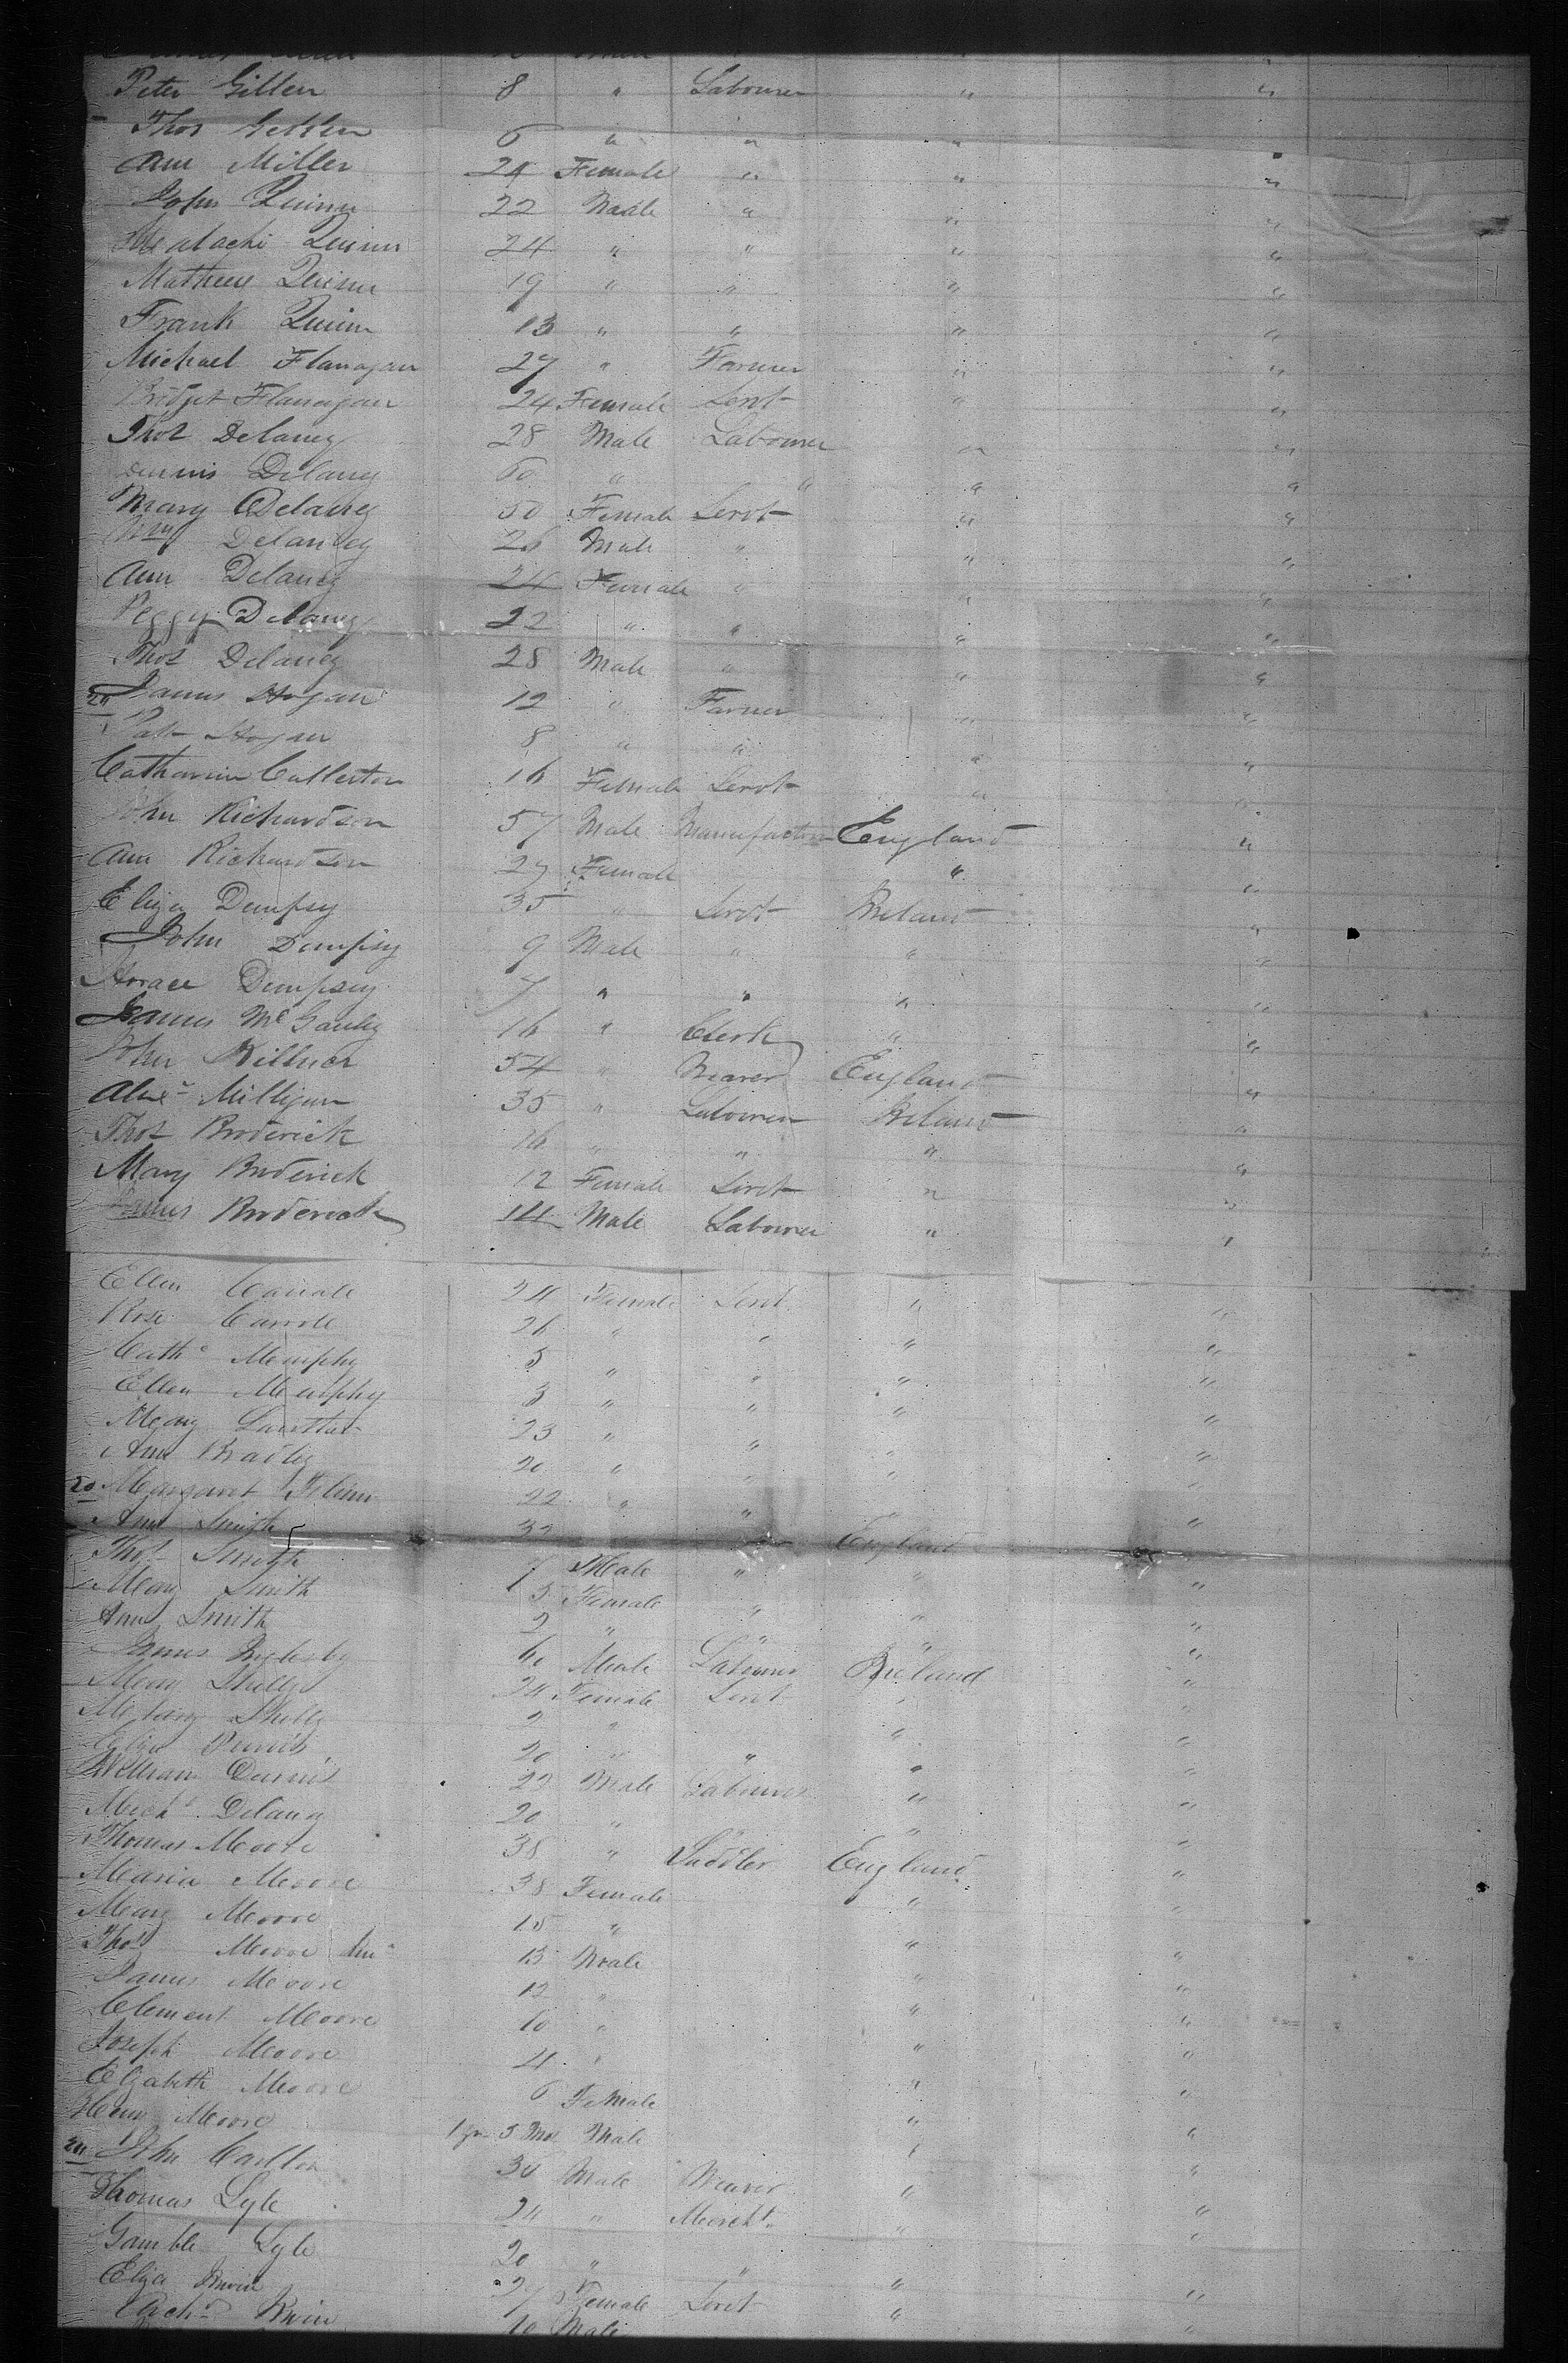 Peter Gillen 8 " Labourer " "
Thos Gillen 6 " " " "
Ann Miller 24 Female " " "
John Quinn 22 Male " " "
Malachi Quinn 24 " " " "
Mathew Quinn 19 " " " "
Frank Quinn 13 " " " "
Michael Flanagan 27 " Farmer " "
Bridget Flanagan 24 Female Servt " "
Thos Delaney 28 Male Labourer " "
Dennis Delaney 60 " " " "
Mary Delaney 50 Female Servt " "
Wm Delaney 26 Male " " "
Ann Delaney 24 Female " " "
Peggy Delaney 22 " " " "
Thos Delaney 28 Male " " "
James Hogan 12 " Farmer " "
Pat Hogan 8 " " " "
Catharine Cullerton 16 Female Servt " "
John Richardson 57 Male Manufacturer England "
Ann Richardson 27 Female " "
Eliza Dempsy 35 " Servt Ireland "
John Dempsey 9 Male " " "
Horace Dempsey 7 " " " "
James McGauley 16 " Clerk " "
John Killner 54 " Weaver England "
Alexr Milligan 35 " Labourer Ireland "
Thos Broderick 16 " " " "
Mary Broderick 12 Female Servt " "
James Broderick 14 Male Labourer " "
Ellen 24 Female Servt " "
Rose 26 " " " "
Cathe Murphy 5 " " " "
Ellen Murphy 3 " " " "
Mary 23 " " " "
Ann Bradley 20 " " " "
20 Margaret 22 " " " "
Ann Smith 32 " England "
Thos Smith 7 Male " " "
Mary Smith 5 Female " " "
Ann Smith 2 " " " "
James 60 Male Labourer Ireland "
Mary Shelly 24 Female Servt " "
Shelly 2 " " "
Eliza 20 " " " "
William 22 Male Labourer " "
Michl Delany 20 " " " "
Thomas Moore 38 " Saddler England "
Maria Moore 38 Female " "
Mary Moore 15 " " "
Thos Moore Junr 13 Male " "
James Moore 12 " " "
Clement Moore 10 " " "
Joseph Moore 4 " " "
Elizabeth Moore 6 Female " "
Henry Moore 1 yr 5 Mos Male " "
John 30 Male Weaver " "
Thomas Lyle 24 " Mercht " "
Gamble Lyle 20 " " " "
Eliza Irwin 27 Female Servt " "
Irwin 10 Male "